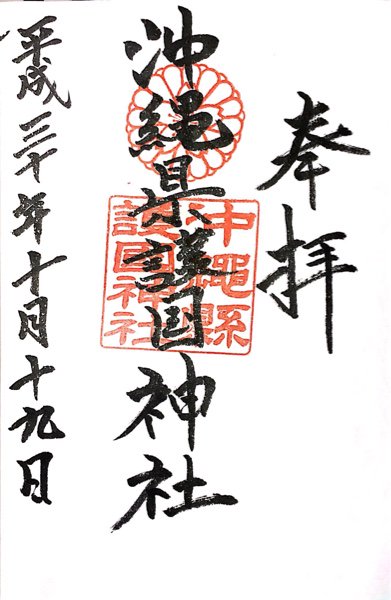 奉拝
沖縄県護国神社
沖繩縣
護国神社
平成三十年十月十九日